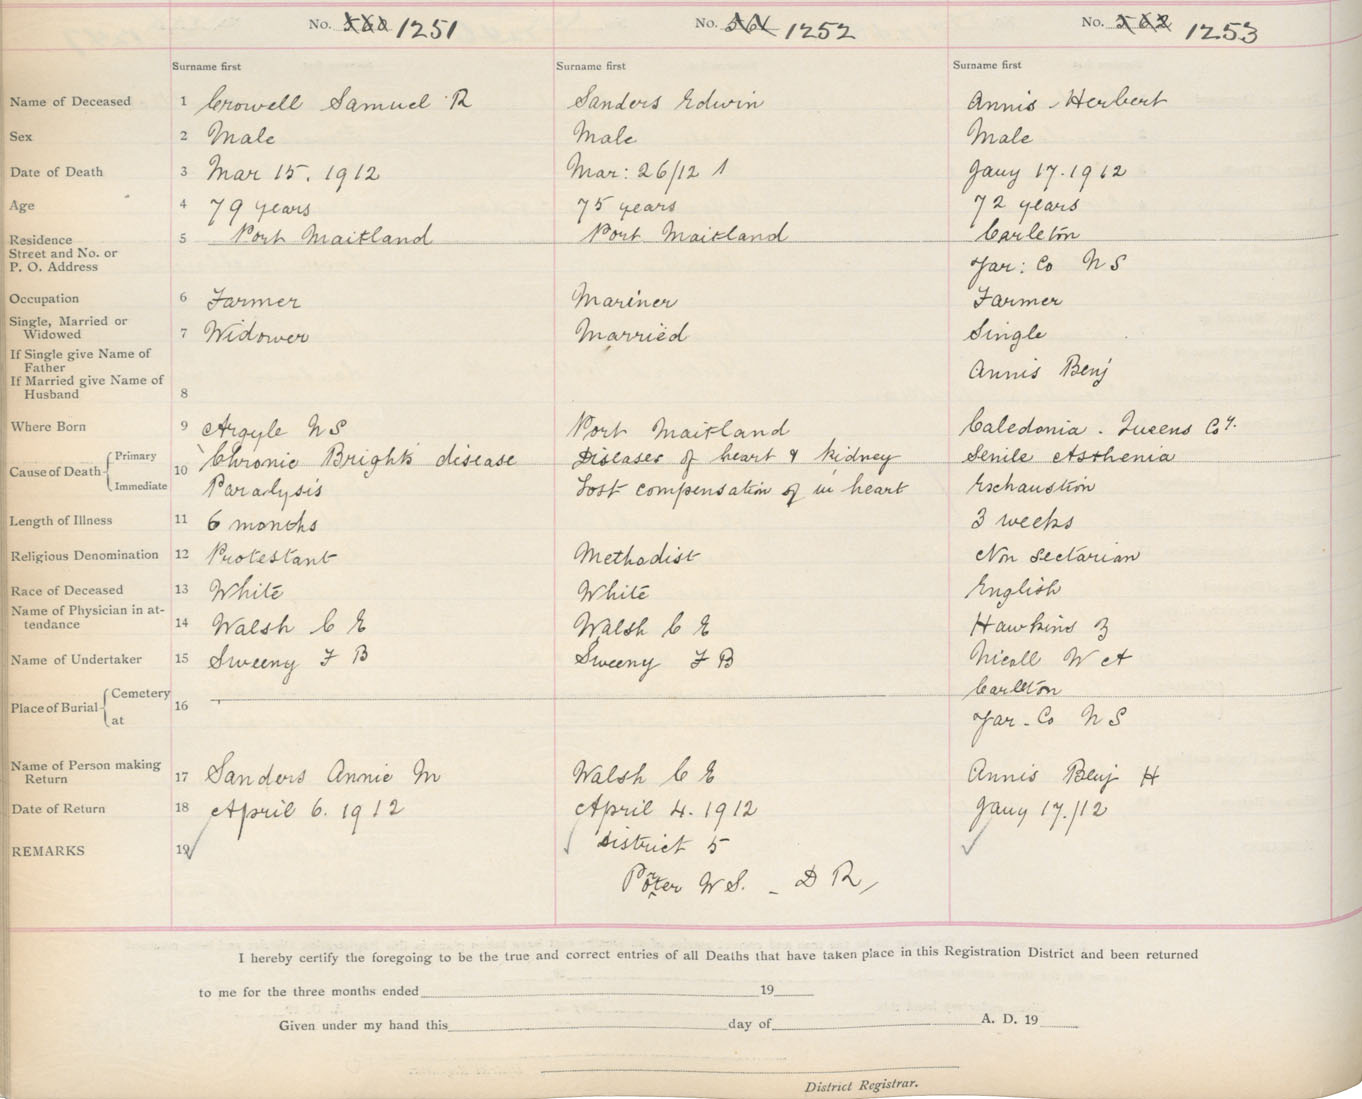 No. 1251 No. 1252 No. 1253
Surname first Surname first Surname first
Name of Deceased 1 Crowell Samuel R Sanders Edwin Annis Herbert
Sex 2 Male Male Male
Date of Death 3 Mar 15. 1912 Mar: 26/12 Jany 17. 1912
Age 4 79 years 75 years 72 years
Residence 5 Port Maitland Port Maitland Carleton
Street and No. or
P. O. Address Yar: Co N S
Occupation 6 Farmer Mariner Farmer
Single, Married or
Widowed 7 Widower Married Single
If Single give Name of
Father Annis Benj
If Married give Name of
Husband 8
Where Born 9 Argyle N S Port Maitland Caledonia - Queens Coy.
Cause of Death Primary 10 Chronic Brights disease Diseases of heart & kidney Senile Asthenia
Immediate Paralysis Lost compensation of in heart Exchaustion
Length of Illness 11 6 months 3 weeks
Religious Denomination 12 Protestant Methodist Non Sectarian
Race of Deceased 13 White White English
Name of Physician in at-
tendance 14 Walsh C E Walsh C E Hawkins Z
Name of Undertaker 15 Sweeny F B Sweeny F B Nicoll W A
Place of Burial Cemetery 16 Carleton
at Yar - Co N S
Name of Person making
Return 17 Sanders Annie M Walsh C E Annis Benj H
Date of Return 18 April 6. 1912 April 4. 1912 Jany 17./12
REMARKS 19 District 5
Porter W S. - D R,
I hereby certify the foregoing to be the true and correct entries of all Deaths that have taken place in this Registration District and been returned
to me for the three months ended 19
Given under my hand this day of A. D. 19
District Registrar.